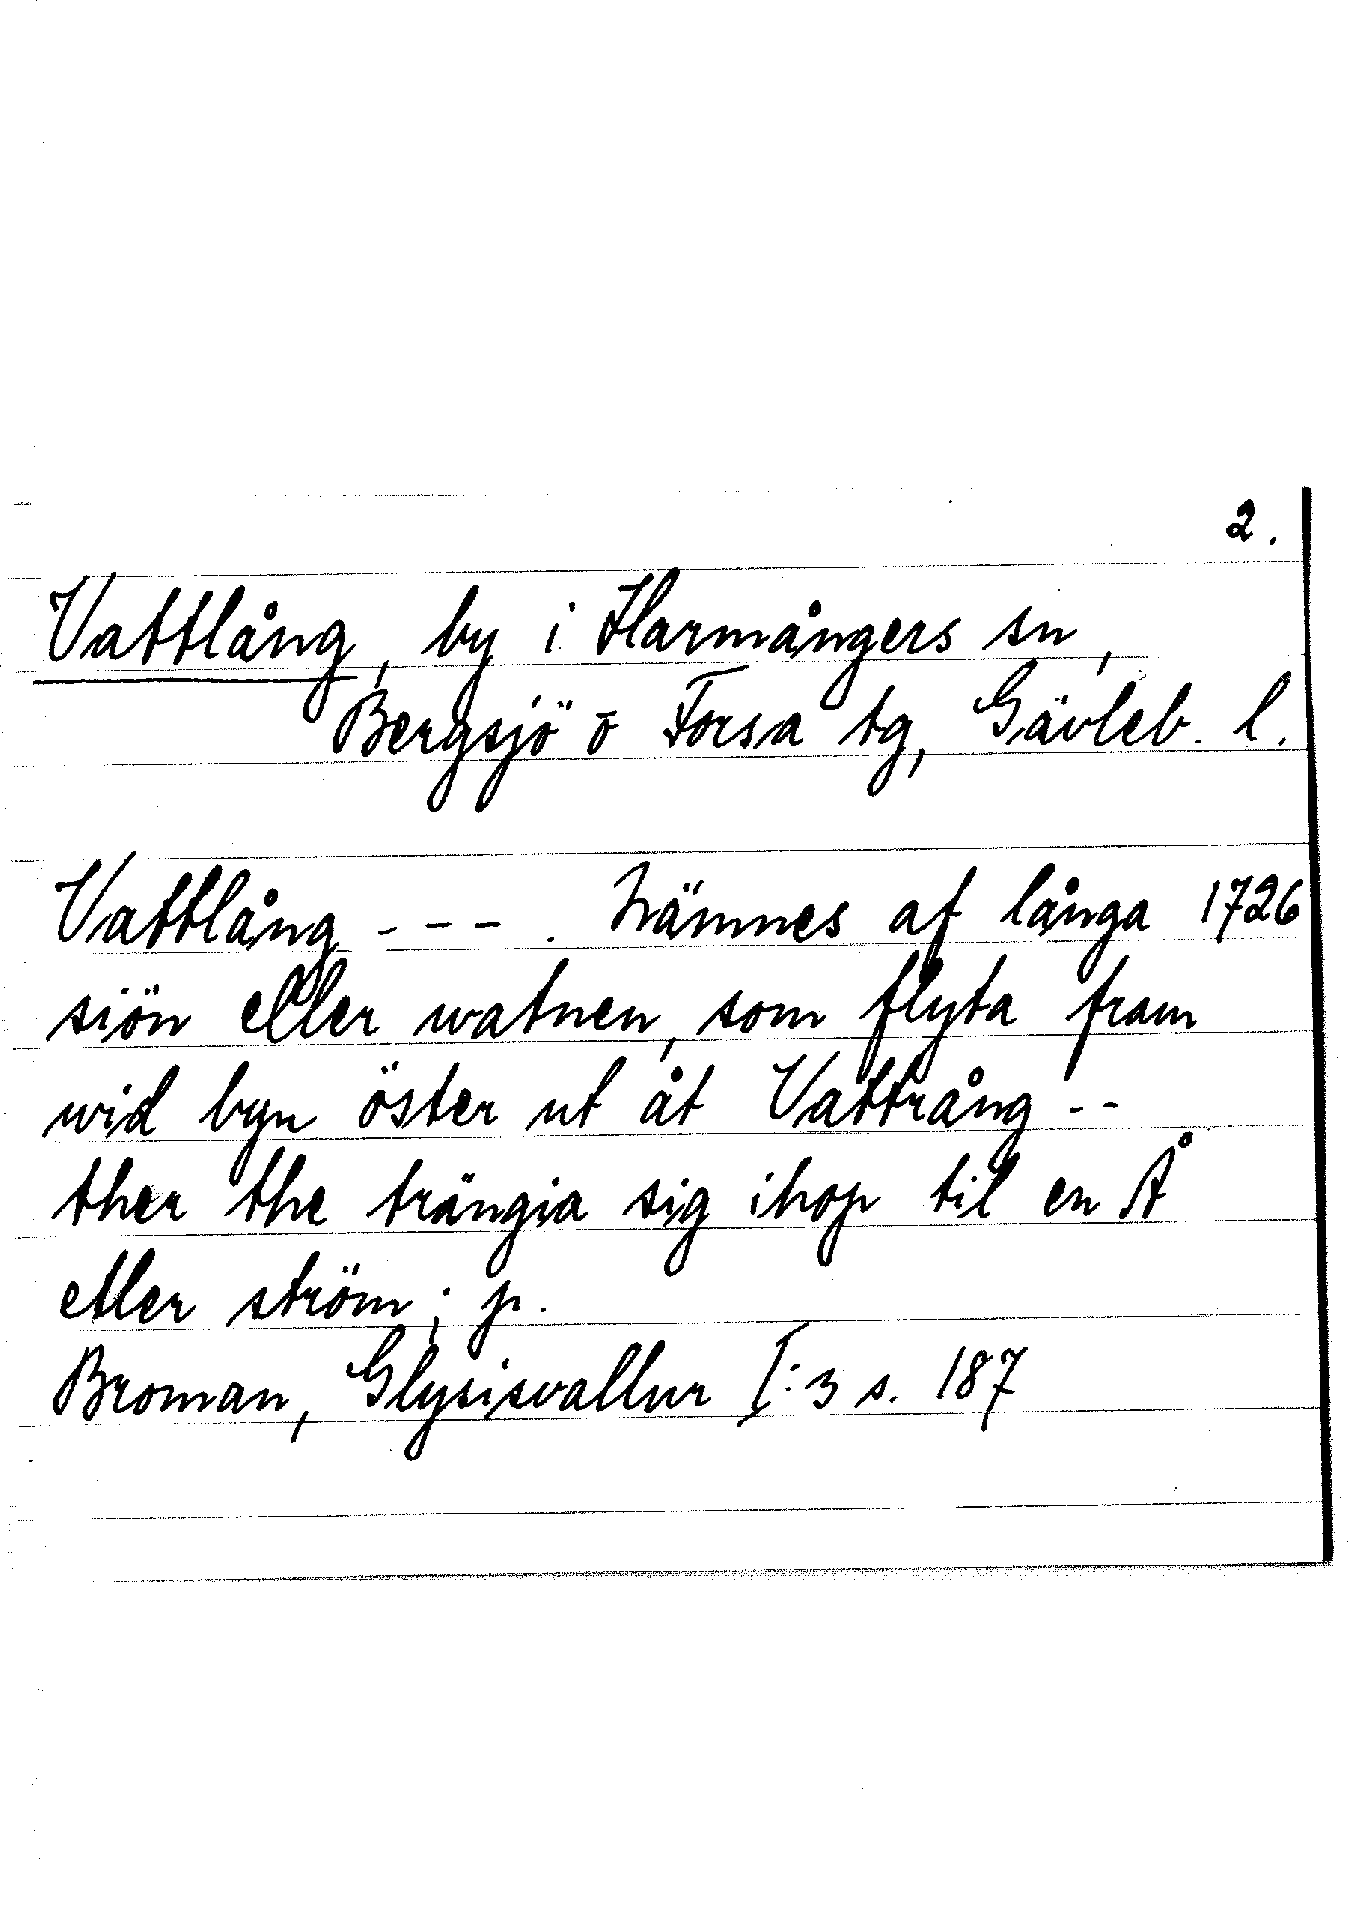 2.
Vattlång, by i Harmångers sn,
Bergsjö o Forsa tg, Gävleb. l.
Vattlång - - - . Nämnes af långa 1726
siön eller watnen, som flyta fram
wid byn öster ut åt Vattrång - -
ther the trängia sig ihop til en Å
eller ström; p.
Broman, Glysisvallur I:3 s. 187